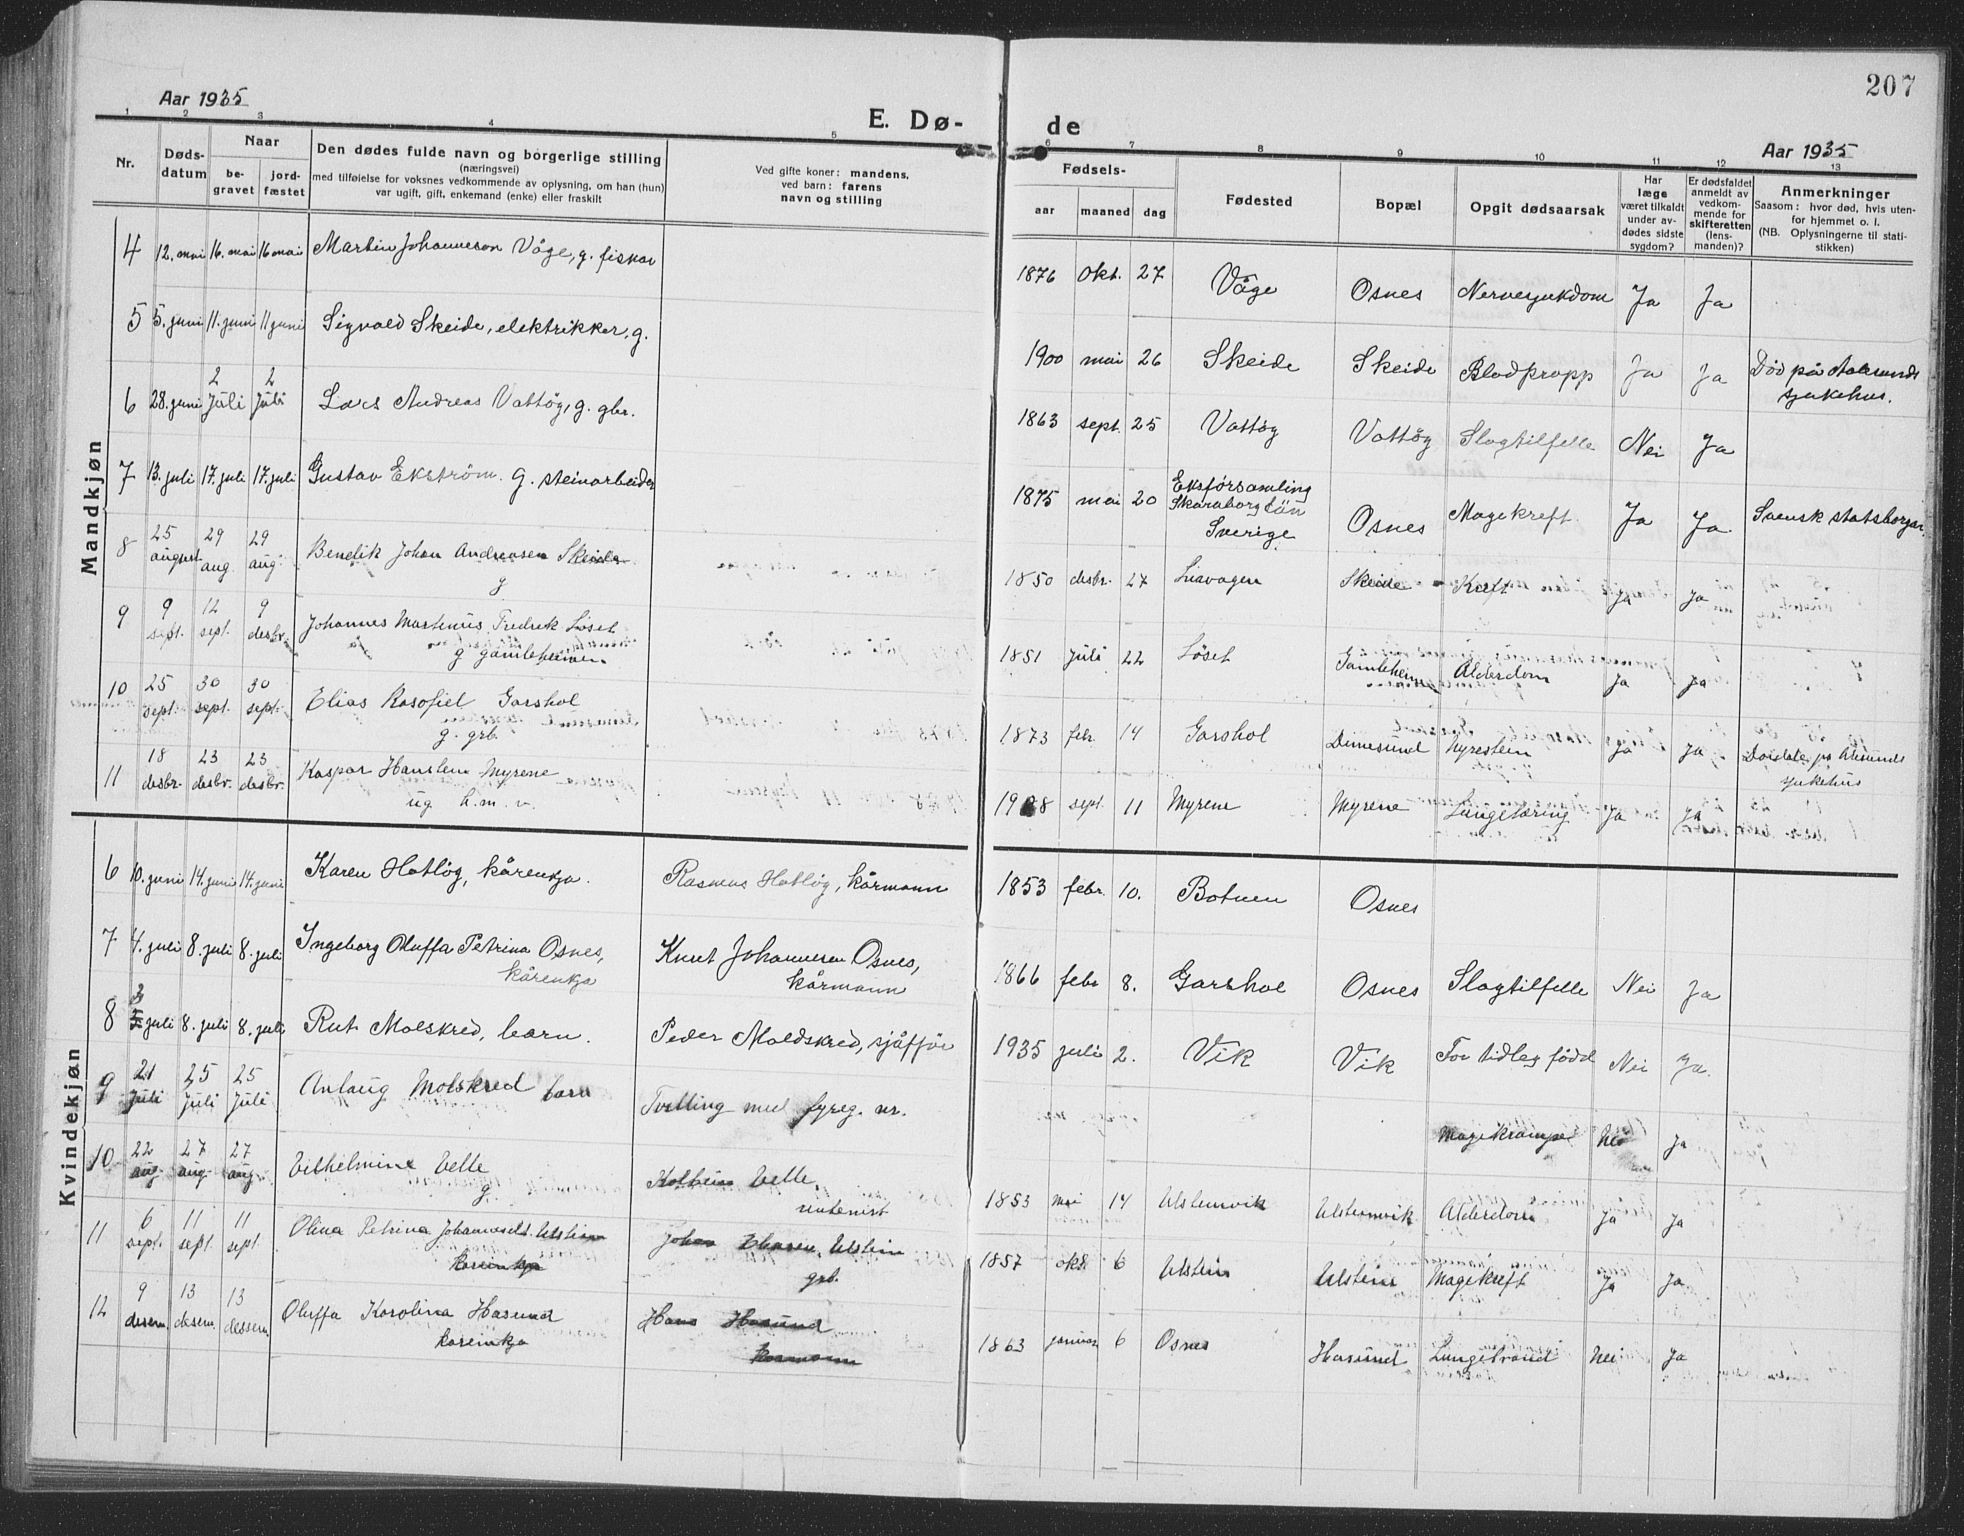 207
Aar 1935
E. Dø- de
Aar 1935
1 2 3 4 5 6 7 8 9 10 11 12 13
Nr.
Døds-
datum
Naar
be-
gravet
jord-
fæstet
Den dødes fulde navn og borgerlige stilling
(næringsvei)
med tilføielse for voksnes vedkommende av oplysning, om han (hun)
var ugift, gift, enkemand (enke) eller fraskilt
Ved gifte koner: mandens,
ved barn: farens
navn og stilling
Fødsels-
aar maaned dag
Fødested
Bopæl
Opgit dødsaarsak
Har
læge
været tilkaldt
under av-
dødes sidste
sygdom?
Er dødsfaldet
anmeldt av
vedkom-
mende for
skifteretten
(lens-
manden)?
Anmerkninger
Saasom: hvor død, hvis uten-
for hjemmet o. l.
(NB. Oplysningerne til stati-
stikken)
Mandkjøn
4 12. mai 16. mai 16 mai Martin Johanneson Våge, g. fiskar
1876 okt. 27 Våge Osnes Nervesjukdom Ja Ja
5 5. juni 11. juni 11 juni Sigvald Skeide, elektrikker, g.
1900 mai 26 Skeide Skeide Blodpropp Ja Ja Død på Aalesunds
sjukehus.
6 28. juni 2 Juli 2 Juli Lars Andreas Vattøy, g. gbr.
1863 sept. 25 Vattøy Vattøy Slagtilfelle Nei Ja
7 13. juli 17. juli 17. juli Gustav Ekström. g. steinarbeider
1875 mai 20 Eksforsamling
Skaraborg län
Sverige Osnes Magekreft. Ja Ja Svensk statsborgar.
8 25 august 29 aug. 29 aug. Bendik Johan Andreasen Skeide
g
1850 desbr. 27 Liavagen Skeide Kreft Ja Ja
9 9 sept. 12 sept. 9 desbr. Johannes Martinus Fredrik Løset
g gamleheimen
1851 juli 22 Løset Gamleheimen Alderdom Ja Ja
10 25 sept. 30 sept. 30 sept. Elias Rasofiel Garshol
g. grb.
1873 febr. 14 Garshol Dimesund Nyrestein Ja Ja
11 18 desbr. 23 desbr. 23 desbr. Kaspar Hanslem Myrene
ug h.m.v.
1908 sept. 11 Myrene Myrene Lungetæring Ja Ja Daidde på Alesunds
sjukehus
Kvindekjøn
6 10. juni 14. juni 14. juni Karen Hatløy, kårenkja. Rasmus Hatløy, kårmann
1853 febr. 10. Botnen Osnes
7 4. juli 8. juli 8. juli Ingeborg Oluffa Petrina Osnes,
kårenkja Knut Johannesen Osnes,
kårmann
1866 febr 8. Garshol Osnes Slagtilfelle Nei Ja
8 3 juli 8. juli 8. juli Rut Molskred, barn. Peder Moldskred, sjåffør
1935 juli 2. Vik Vik For tidleg född Nei Ja.
9 21 Juli 25 Juli 25 Juli Anlaug Molskred barn Tvilling med fyreg. nr.
Magekrampe Nei Ja
10 22 aug. 27 aug. 27 aug. Vilhelmine Velle
g. Kolbein Velle,
1853 mai 14 Ulsteinvik Ulsteinvik Alderdom Ja Ja
11 6 sept. 11 sept. 11 sept Olina Petrina Johannesdt. Ulstein
Johan Ulstein
grb.
1857 okt 6 Ulstein Ulstein Magekreft Ja Ja
12 9 desem. 13 desem. 13 dessem. Oluffa Karolina Hasund
kareinkja Hans Hasund
karmann
1863 januar 6 Osnes Hasund Lungebrand Nei Ja